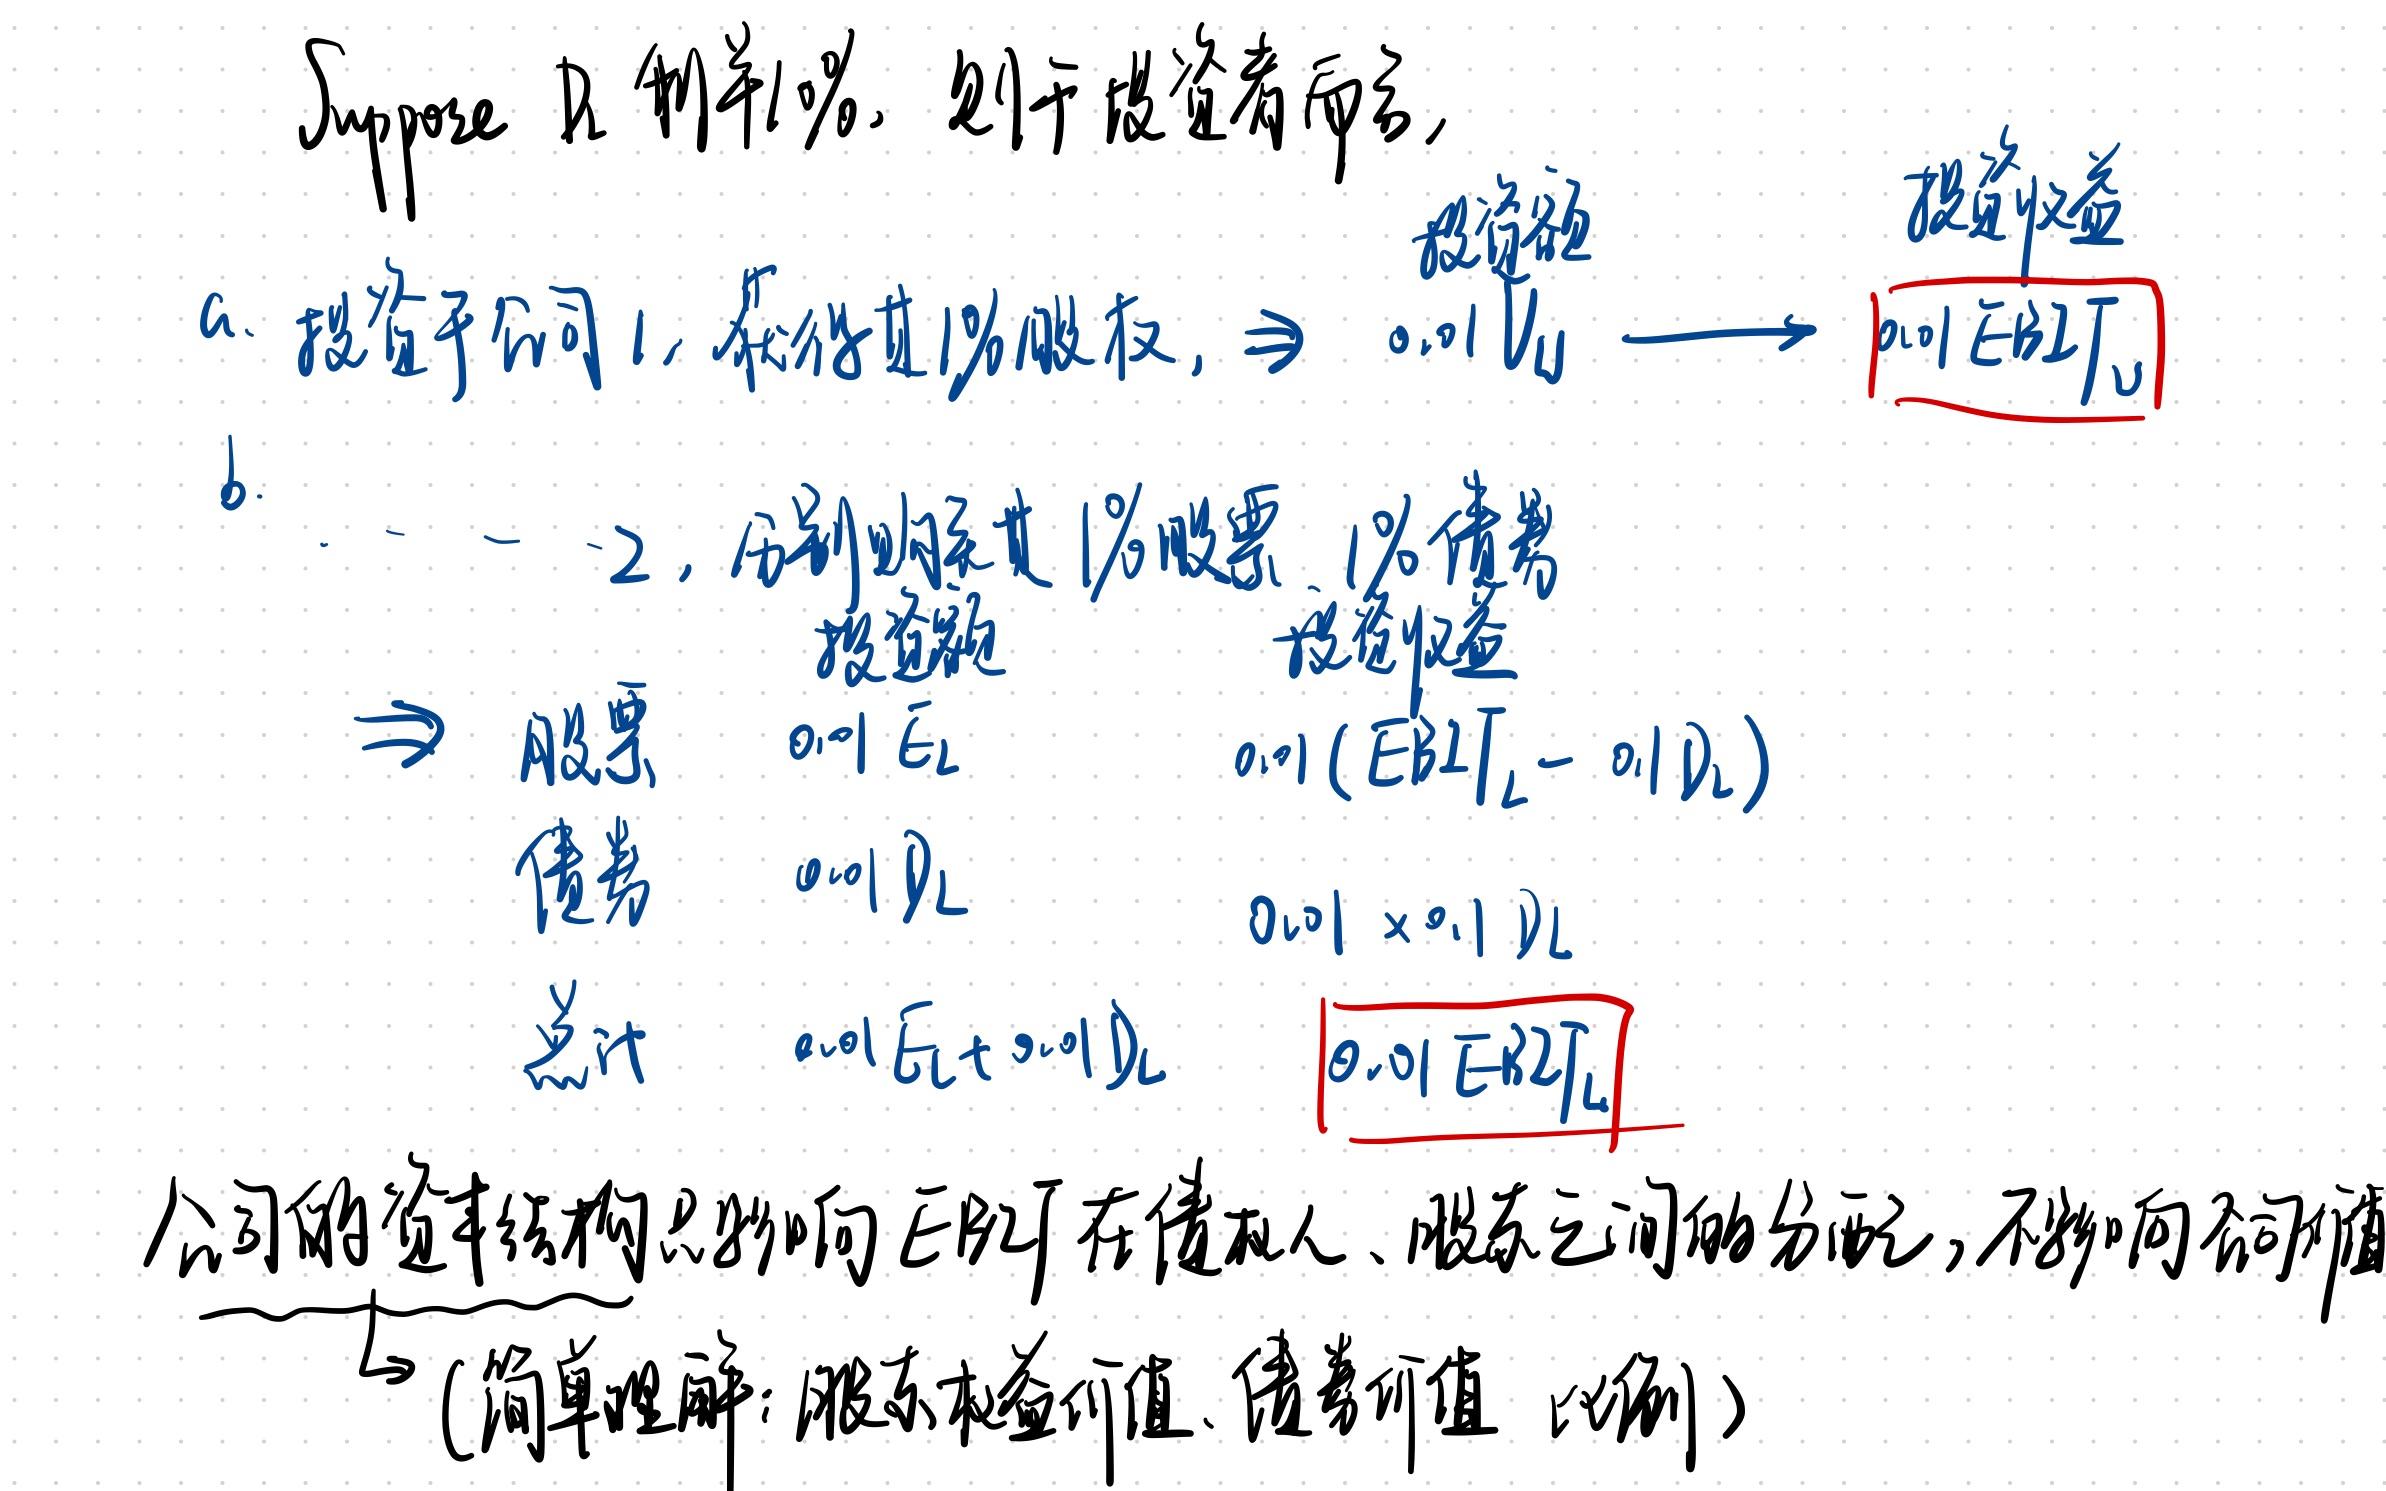 Suppose D 利率10%. 则于投资者而言,
投资额 投资收益
a. 投资于公司1, 并购其1%股权, ⇒ 0.01 V_U → 0.01 EBIT_U
b. 2, 分别购买其1%股票、1%债券
投资额 投资收益
⇒ 股票 0.01 E_L 0.01(EBIT_L - 0.1 D_L)
债券 0.01 D_L 0.01 × 0.1 D_L
总计 0.01 E_L + 0.01 D_L 0.01 EBIT_L
公司的资本结构只影响EBIT在债权人、股东之间的分配, 不影响公司价值
(简单理解: 股东权益价值、债券价值 比例)